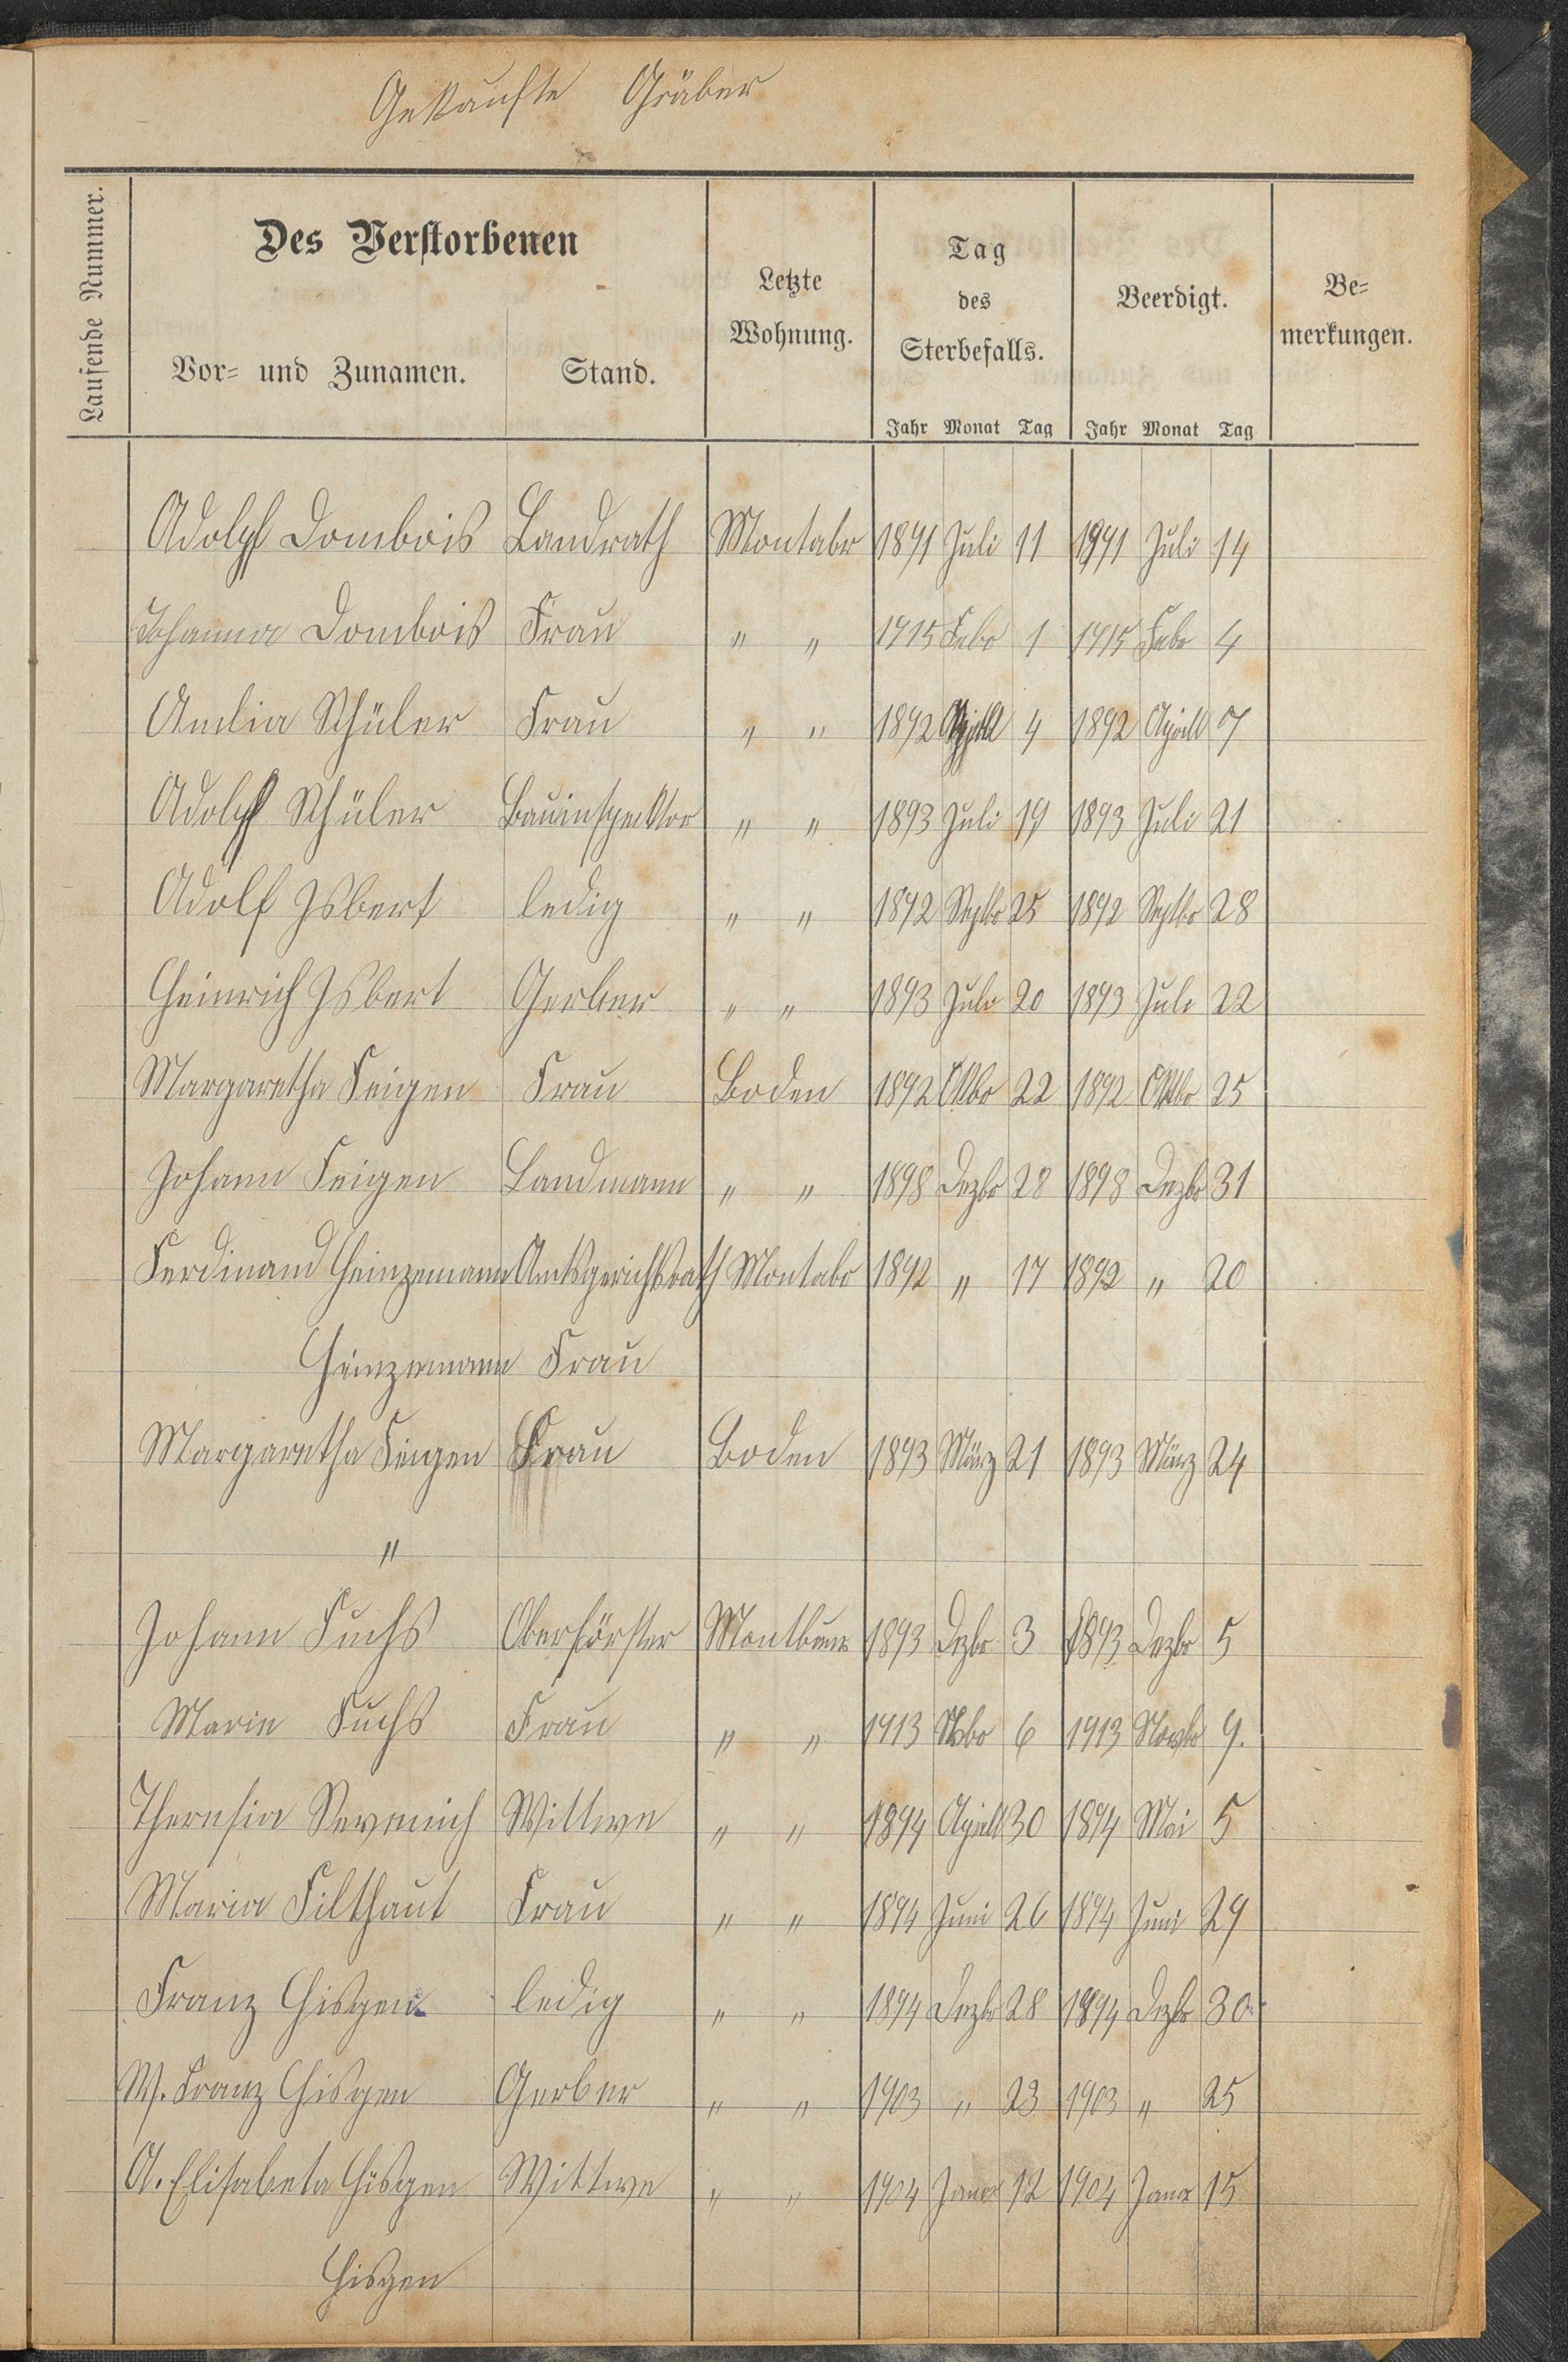 Gekaufte Gräber
Laufende Nummer.
Des Verstorbenen
Vor- und Zunamen. Stand.
Letzte Wohnung.
Tag des Sterbefalls.
Beerdigt.
Be-
merkungen.
Jahr Monat Tag Jahr Monat Tag
Adolph Dombois Landrath Montabr 1891 Juli 11 1891 Juli 14
Johanna Dombois Frau " " 1915 Febr 1 1915 Febr 4
Amlia Schüler Frau " " 1892 Aprill 4 1892 Aprill 7
Adolph Schüler Bauinspecktor " " 1893 Juli 19 1893 Juli 21
Adolf Isbert ledig " " 1892 Septbr 25 1892 Septbr 28
Heinrich Isbert Gerber " " 1893 Juli 20 1893 Juli 22
Margaretha Feigen Frau Boden 1892 Oktbr 22 1892 Oktbr 25
Johann Feigen Landmann " " 1898 Dezbr 28 1898 Dezbr 31
Ferdinand Heinzemann Amtsgerichtsrath Montabr 1892 " 17 1892 " 20
Heinzemann Frau
Margaretha Feigen Frau Boden 1893 März 21 1893 März 24
"
Johann Fuchs Oberförster 1893 Dezbr 3 1893 Dezbr 5
Marie Fuchs Frau " " 1913 Nvbr 6 1913 Novbr 9.
Theresia Sevenich Wittwe " " 1894 Aprill 30 1894 Mai 5
Maria Filthaut Frau " " 1894 Juni 26 1894 Juni 29
Franz Hisgen ledig " " 1894 Dezbr 28 1894 Dezbr 30
W. Franz Hisgen Gerber " " 1903 " 23 1903 " 25
A. Elisabeta Hisgen Wittwe " " 1904 Janr 12 1904 Janr 15
Hisgen